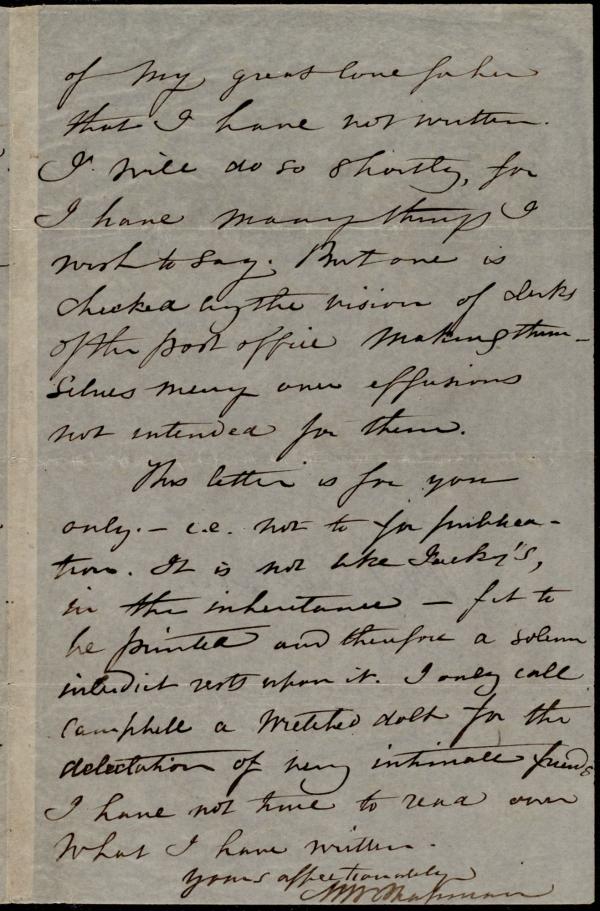 of my great love for her
that I have not written.
I will do so shortly, for
I have many things I
wish to say. But one is
checked by the vision of clerks
of the post office making them-
selves merry over effusions
not intended for them.
This letter is for you
only. - i.e. not to for publica-
tion. It is not like
in the inheritance - fit to
be printed and therefore a solemn
interdict rests upon it. I only call
Campbell a wretched dolt for the
delectation of very intimate friends
I have not time to read over
what I have written.
yours affectionately
M W Chapman